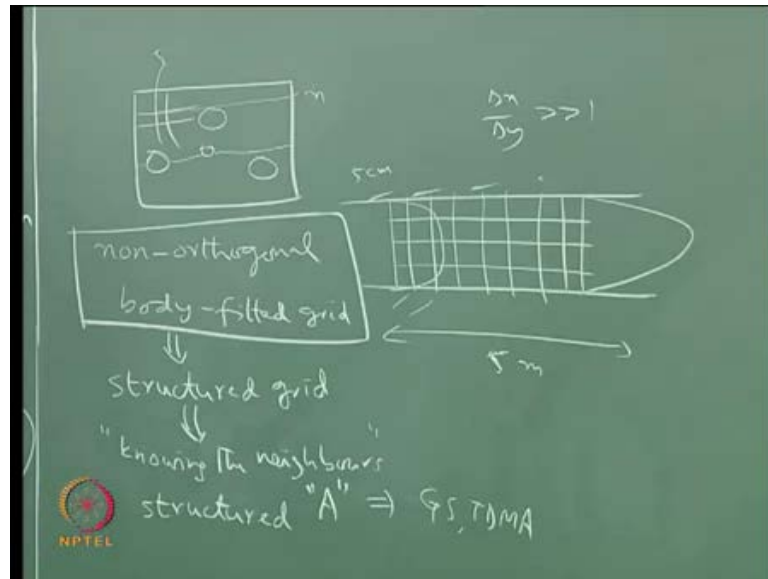 ξ
η
Δx/Δy >> 1
5cm
non-orthogonal
body-fitted grid
⇓
5 m
structured grid
⇓
"knowing the neighbours"
structured "A" ⇒ GS, TDMA
NPTEL